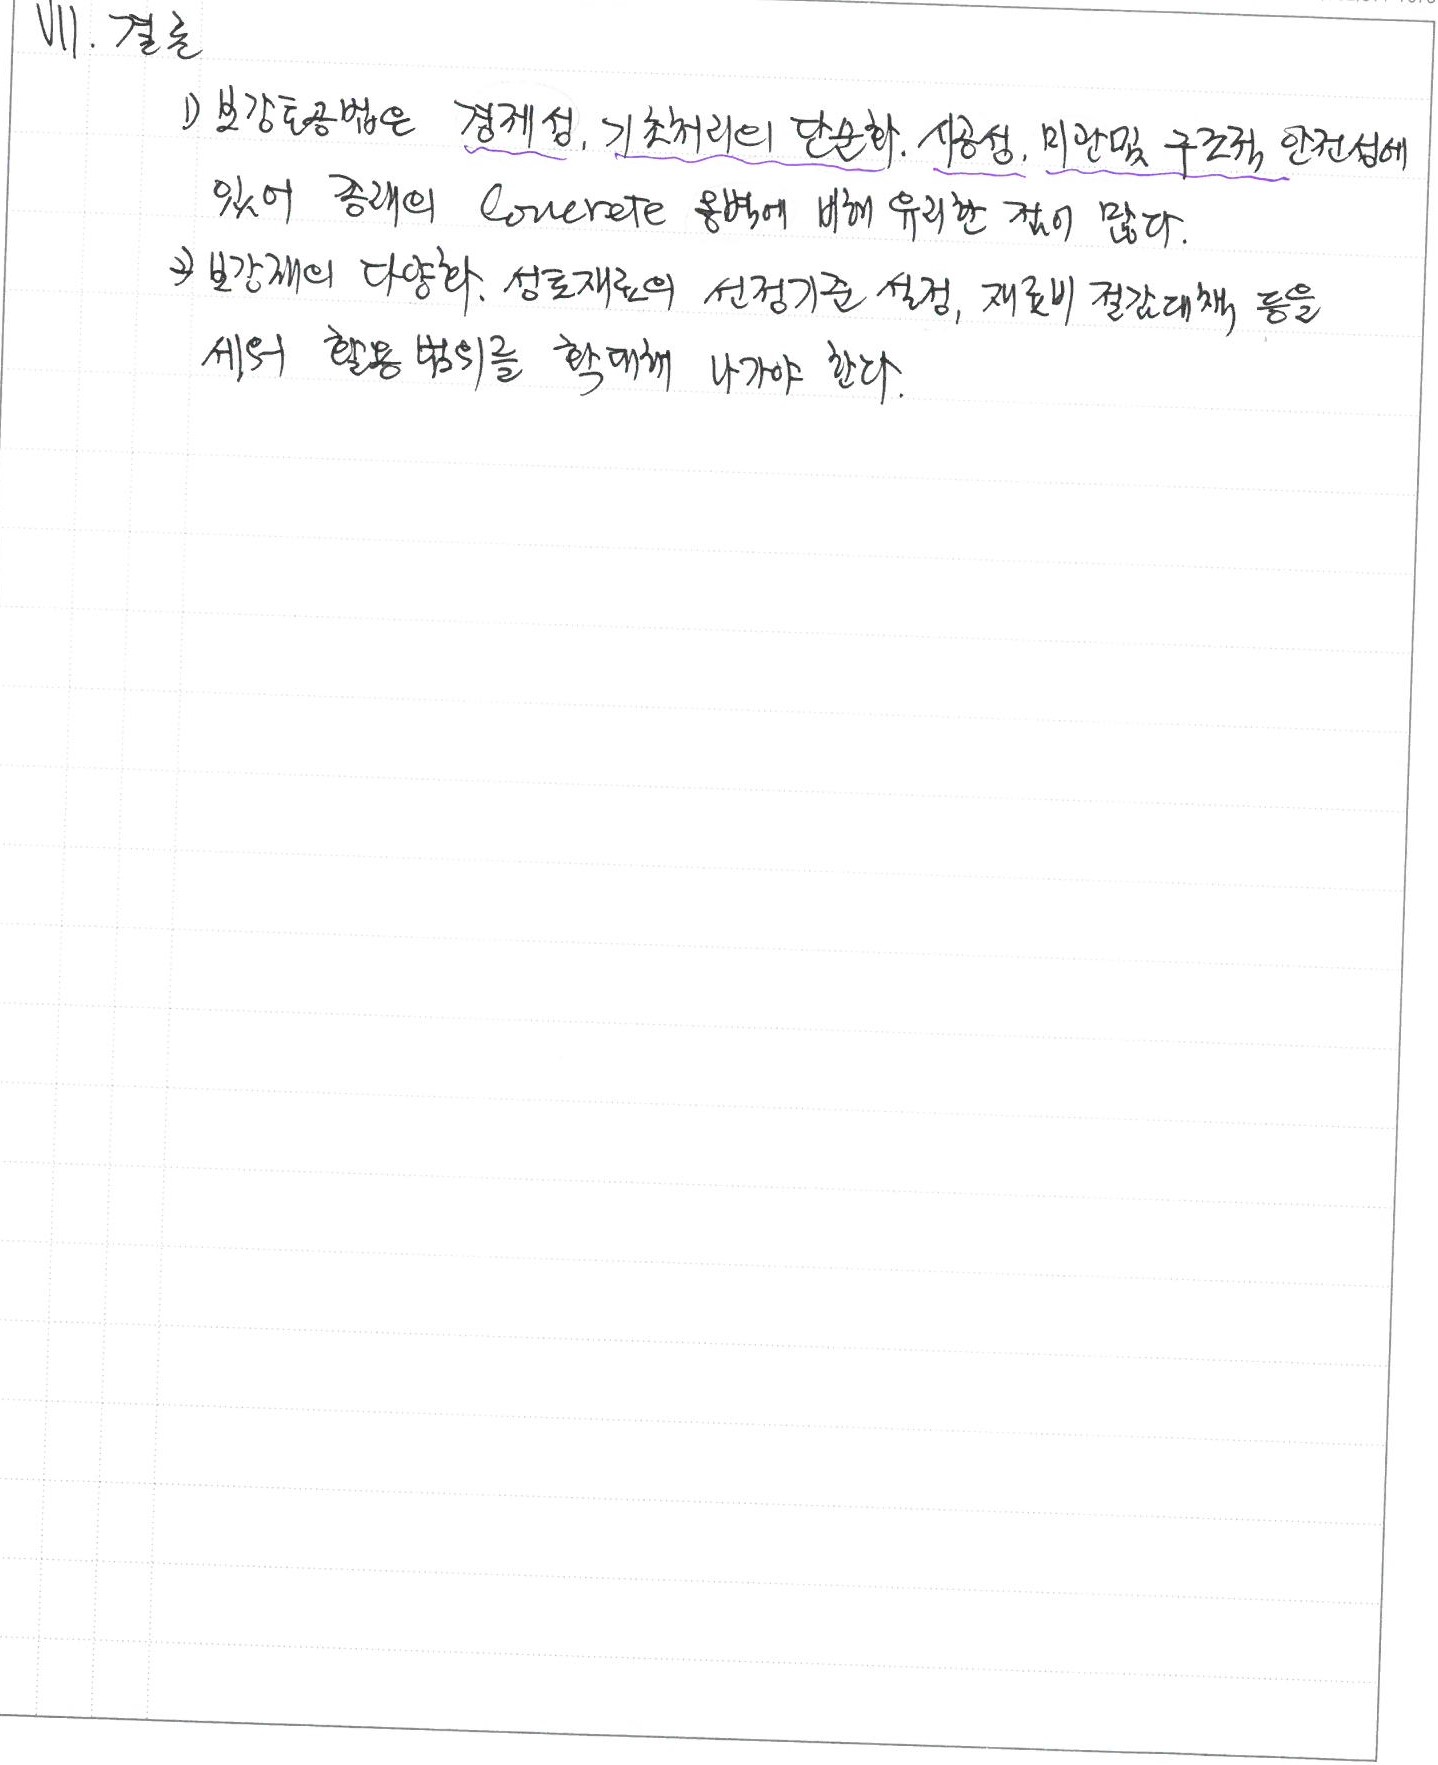 VII. 결론
1) 보강토공법은 경제성, 기초처리의 단순화, 시공성, 미관및 구조적 안전성에
있어 종래의 Concrete 옹벽에 비해 유리한 점이 많다.
2) 보강재의 다양화, 성토재료의 선정기준 설정, 재료비 절감대책 등을
세워 활용범위를 확대해 나가야 한다.